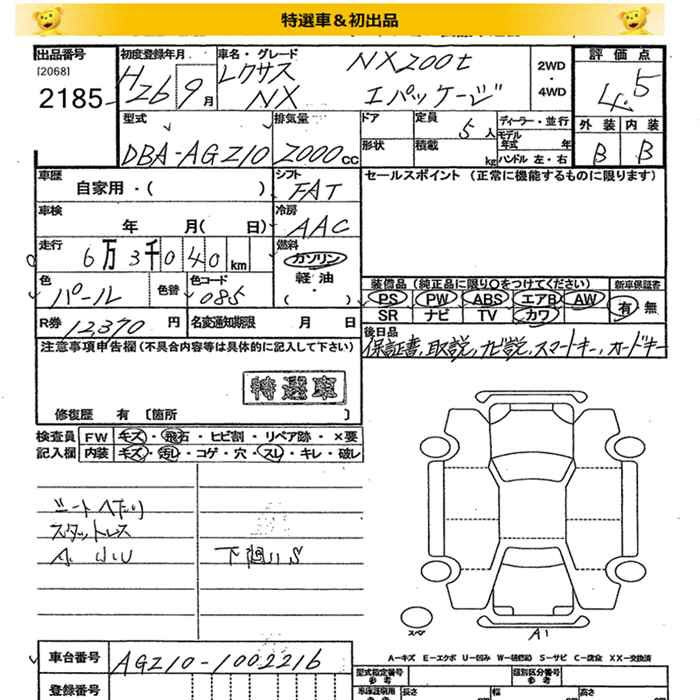 特選車＆初出品
出品番号 初度登録年月 車名・グレード 評価点
[2068] H26 9月 レクサス NX200t 2WD 4.5
2185 NX Iパッケージ ・4WD
型式 排気量 ドア 定員 5人 ディーラー・並行 外装 内装
モデル年式 年
DBA-AGZ10 2000cc 形状 積載 kg ハンドル 左・右 B B
車歴 自家用・( ) シフト FAT セールスポイント (正常に機能するものに限ります)
車検 年 月( 日) 冷房 AAC
走行 6万3千040km 燃料 ガソリン
軽油・( )
色 パール 色替 色コード 085
装備品 (純正品に限り○をつけてください) 新車保証書
PS PW ABS エアB AW 有・無
SR ナビ TV カワ
R券 12,370円 名変通知期限 月 日
後日品
保証書, 取説, ナビ説, スマートキー, カードキー
注意事項申告欄 (不具合内容等は具体的に記入して下さい)
特選車
修復歴 有 〔箇所 〕
検査員 FW キズ・飛石・ヒビ割・リペア跡・×要
記入欄 内装 キズ・汚れ・コゲ・穴・スレ・キレ・破レ
シートヘタリ
スタットレス
下廻りS
スペア
A1
A－キズ E－エクボ U－凹み W－補修跡 S－サビ C－腐食 XX－交換済
車台番号 AGZ10-1002216
型式指定番号 参考 類別区分番号 参考
登録番号 車庫証明用 参考 長さ 幅 高さ